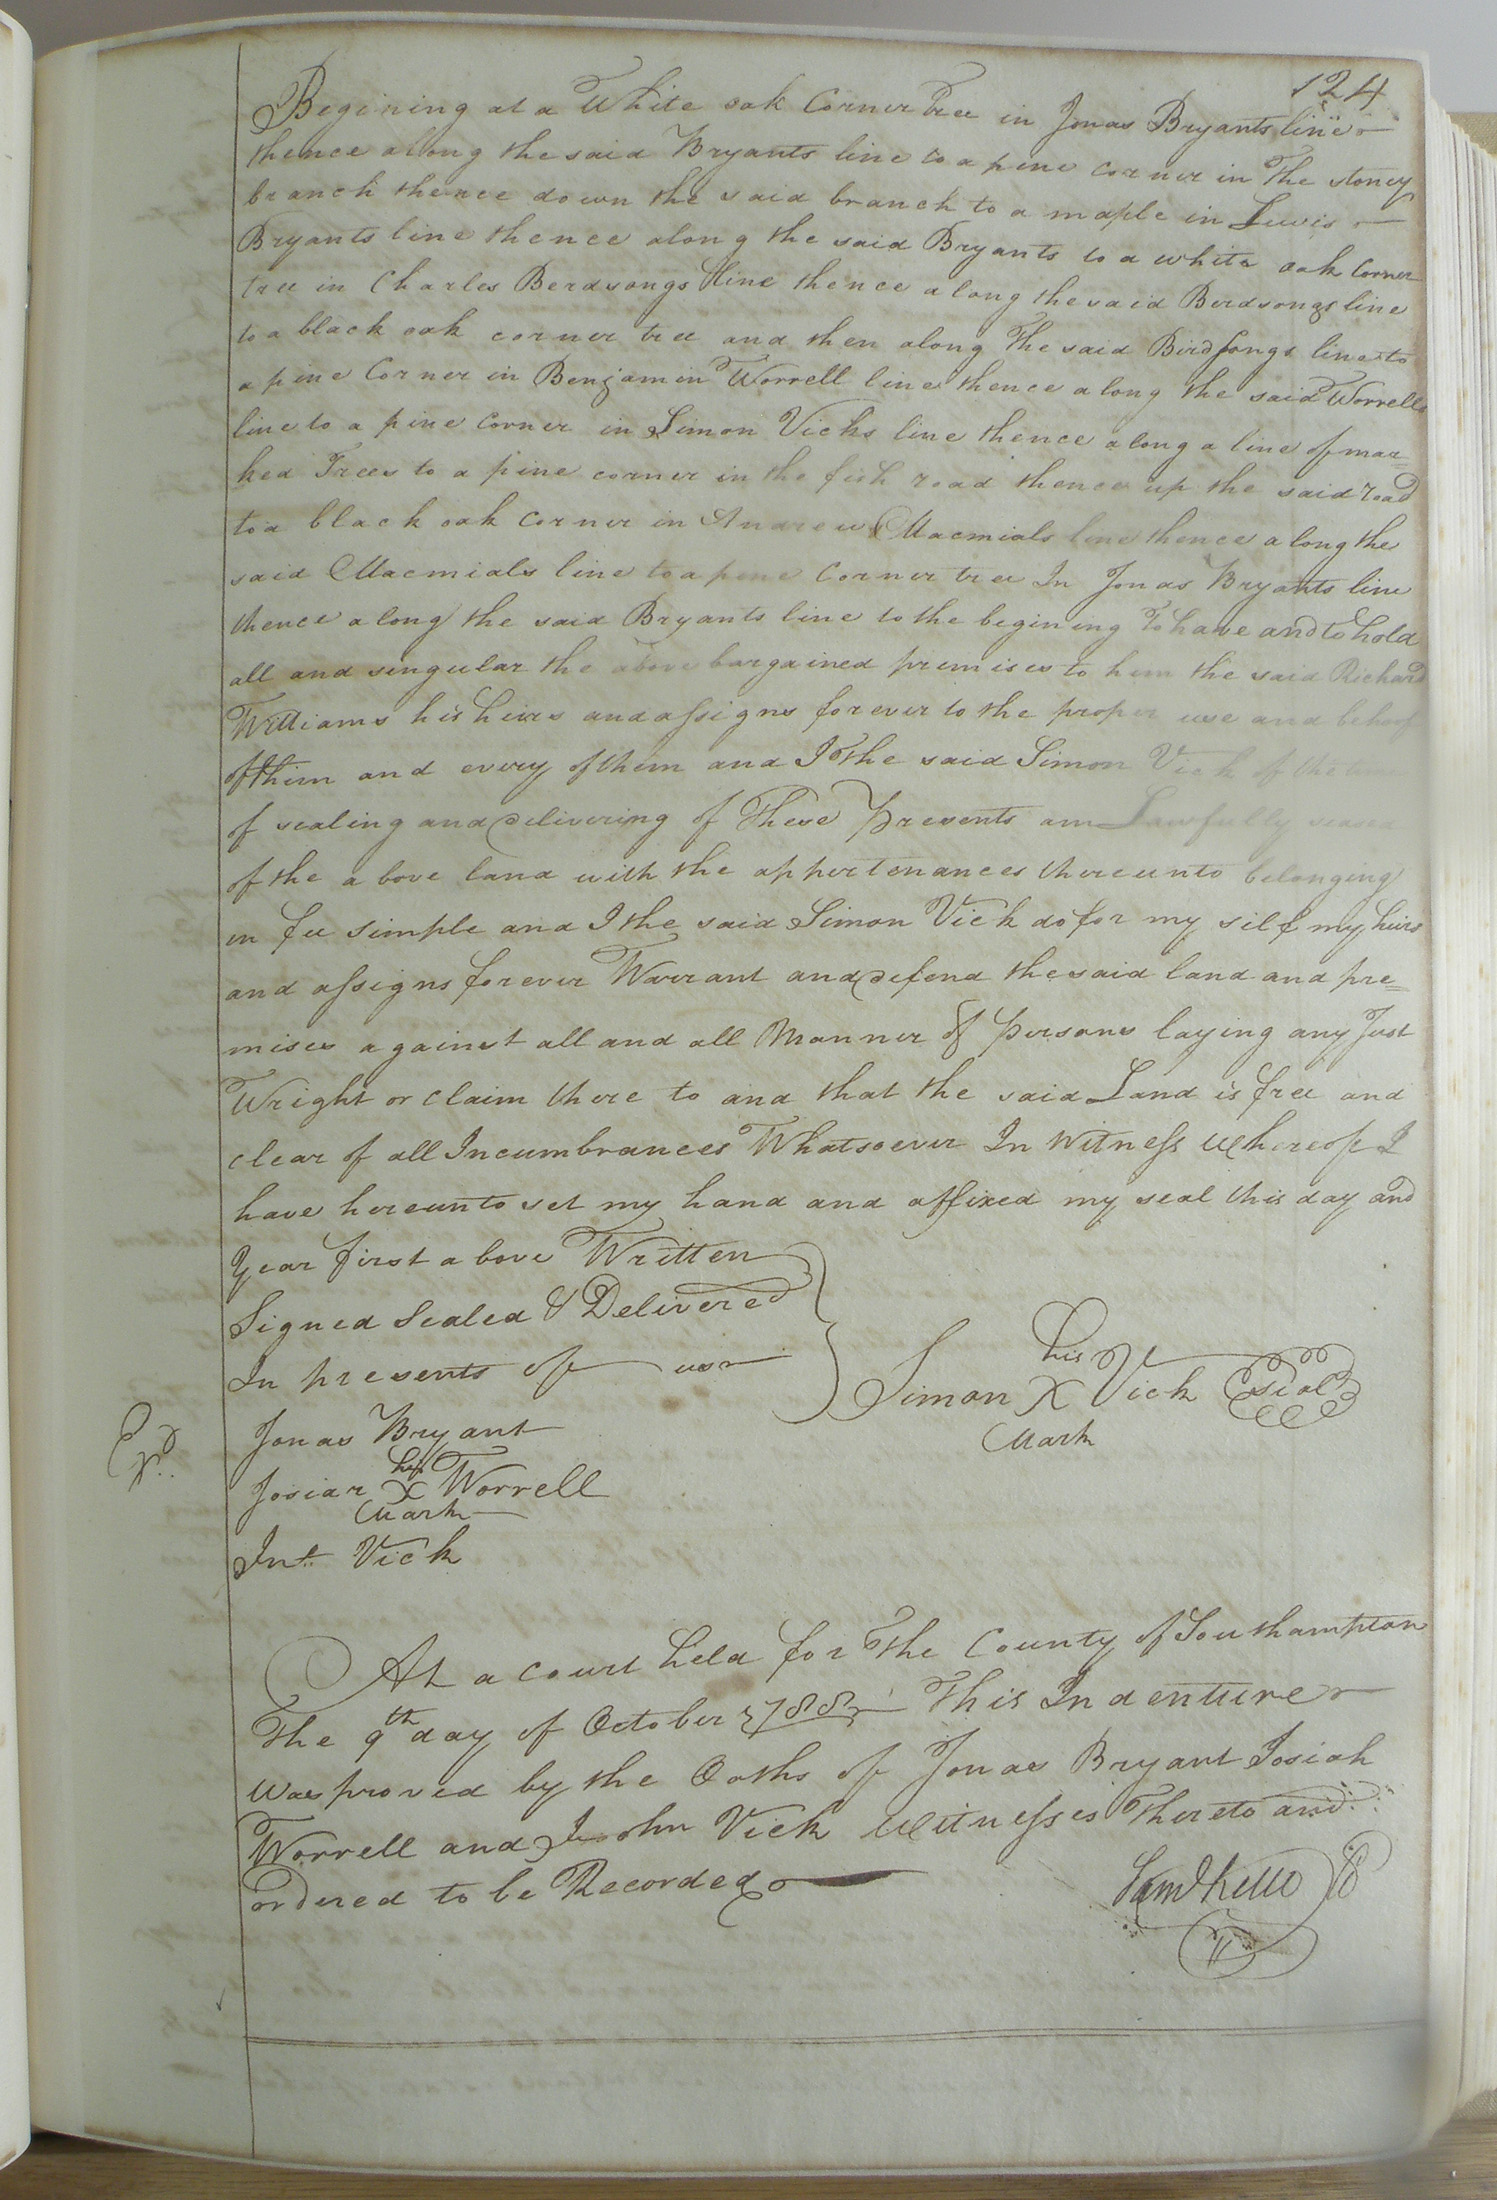 124
Begining at a White oak Corner Tree in Jonas Bryants line
thence along the said Bryants line to a pine corner in The stoney
branch thence down the said branch to a maple in Lewis
Bryants line thence along the said Bryants to a white oak Corner
tree in Charles Berdsongs line thence along the said Berdsongs line
to a black oak corner tree and then along The said Birdsongs line to
a pine Corner in Benjamin Worrell line thence along the said Worrells
line to a pine Corner in Simon Vicks line thence along a line of mar=
ked Trees to a pine corner in the road thence up the said road
to a black oak Corner in Andrew Macmials line thence along the
said Macmials line to a pine Corner tree In Jonas Bryants line
thence along the said Bryants line to the begining To have and to hold
all and singular the above bargained premises to him the said Richard
Williams his heirs and assigns forever to the proper use and behoof
of him and every of them and I The said Simon Vick of the
of sealing and delivering of These Presents am Lawfully seased
of the above land with the appertenances thereunto belonging
in fee simple and I the said Simon Vick do for my self my heirs
and assigns forever Warrant and defend the said land and pre=
mises against all and all Manner of Persons laying any Just
Wright or claim there to and that the said Land is free and
clear of all Incumbrances Whatsoever In Witness Whereof I
have hereunto set my hand and affixed my seal this day and
Year first above Written
Signed Sealed & Delivered
In presents of us
his
Simon X Vick seal
Mark
Jonas Bryant
his
Josiar X Worrell
Mark
Jno. Vick
Exd..
At a Court held for The County of Southampton
The 9th day of October 1788 This Indenture
was proved by the Oaths of Jonas Bryant Josiah
Worrell and John Vick Witnesses Thereto and
ordered to be Recorded
Saml Kello